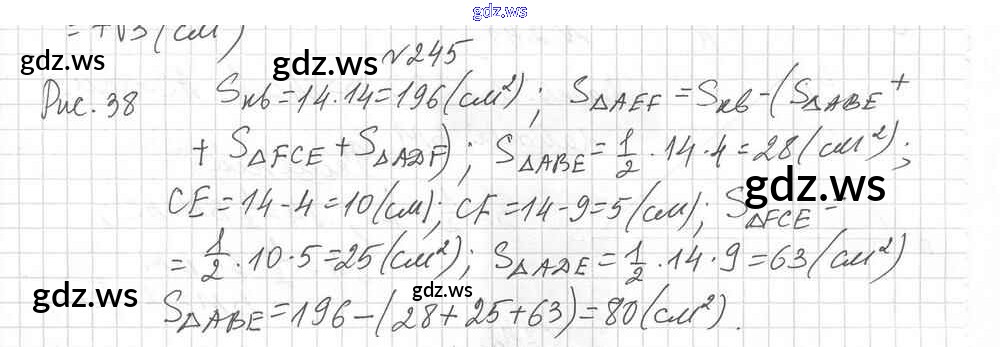 gdz.ws
= 7√3 (см)
gdz.ws gdz.ws №245 gdz.ws
Рис. 38 Sкв = 14·14 = 196 (см²); S△AEF = Sкв - (S△ABE +
+ S△FCE + S△ADF); S△ABE = 1/2 · 14 · 4 = 28 (см²);
gdz.ws
CE = 14 - 4 = 10 (см); CF = 14 - 9 = 5 (см); S△FCE =
= 1/2 · 10 · 5 = 25 (см²); S△ADE = 1/2 · 14 · 9 = 63 (см²)
gdz.ws gdz.ws
S△ABE = 196 - (28 + 25 + 63) = 80 (см²).